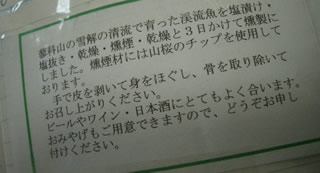 蓼科山の雪解の清流で育った渓流魚を塩漬け・
塩抜き・乾燥・燻煙・乾燥と3日かけて燻製に
しました。燻煙材には山桜のチップを使用して
おります。
手で皮を剥いて身をほぐし、骨を取り除いて
お召し上がりください。
ビールやワイン・日本酒にとてもよく合います。
おみやげもご用意できますので、どうぞお申し
付けください。